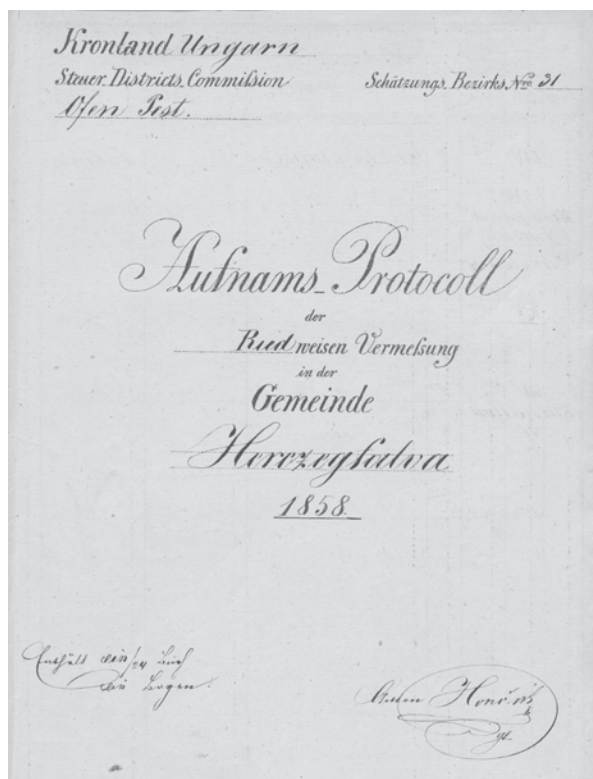 Kronland Ungarn
Steuer-Districts-Commission
Schätzungs-Bezirks-Nro 31
Ofen Pest.
Aufnams-Protocoll
der
Riedweisen Vermessung
in der
Gemeinde
Herczogfalva
1858.
Enthält
Bogen.
Anton